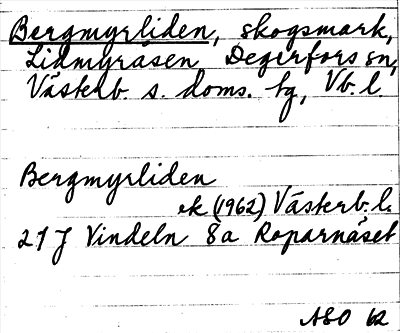 Bergmyrliden, skogsmark,
Lidmyråsen Degerfors sn,
Västerb. s. doms. tg, Vb. l.
Bergmyrliden
ek (1962) Västerb. l.
21 J Vindeln 8a Roparnäset
ASO 62